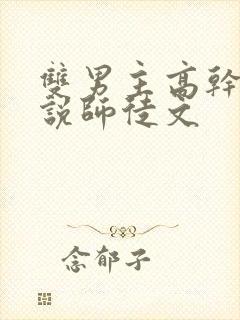 雙男主高幹
說師徒文
念郁子